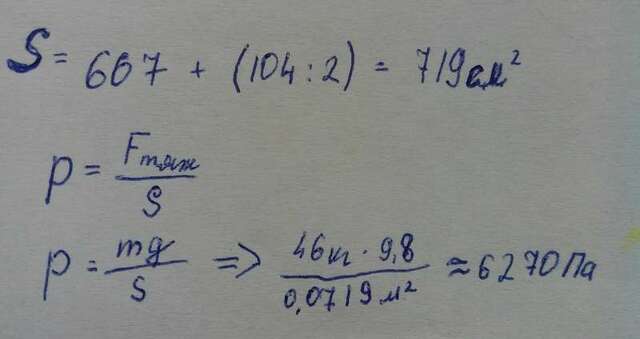 S = 667 + (104 : 2) = 719 см²
p = Fтяж / S
p = mg / S => 46 кг · 9,8 / 0,0719 м² ≈ 6270 Па